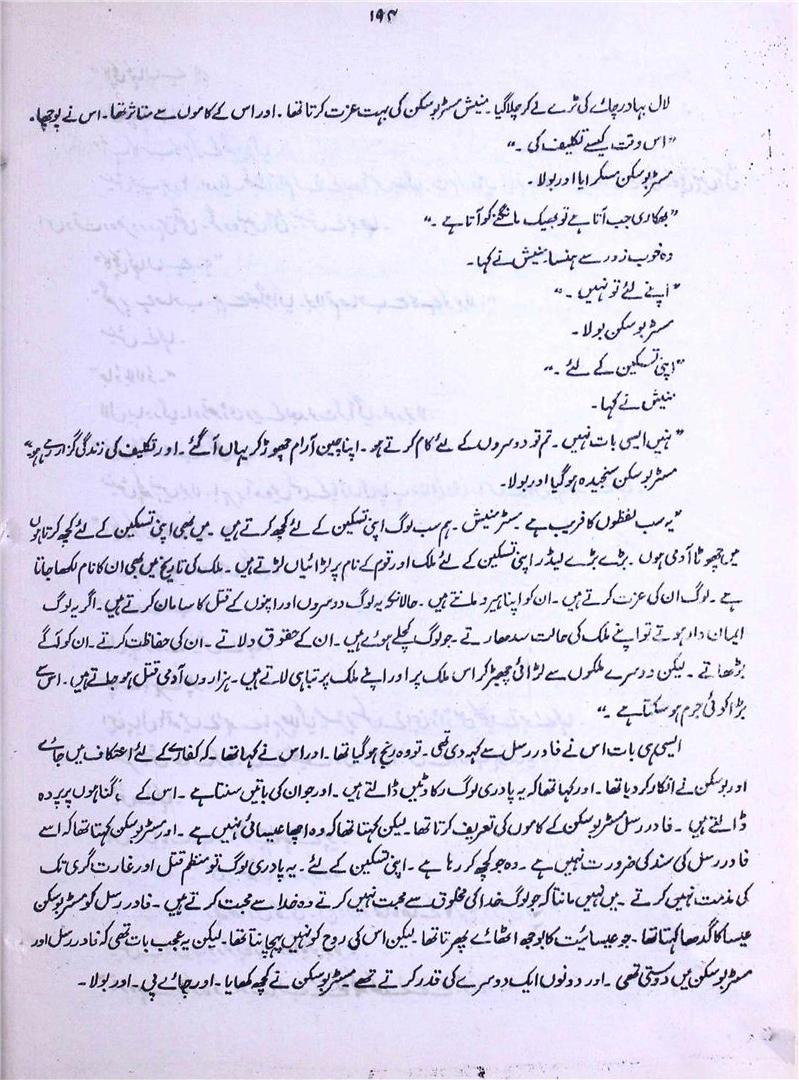 ۱۹۴
لال بہادر چائے کی ٹرے لے کر چلا گیا۔ منیش مسٹر بوسکن کی بہت عزت کرتا تھا۔ اور اس کے کاموں سے متاثر تھا۔ اس نے پوچھا۔
"اس وقت کیسے تکلیف کی۔"
مسٹر بوسکن مسکرایا اور بولا۔
"بھکاری جب آتا ہے تو بھیک مانگنے کو آتا ہے۔"
وہ خوب زور سے ہنسا۔ منیش نے کہا۔
"اپنے لئے تو نہیں۔"
مسٹر بوسکن بولا۔
"اپنی تسکین کے لئے۔"
منیش نے کہا۔
"نہیں ایسی بات نہیں۔ تم تو دوسروں کے لئے کام کرتے ہو۔ اپنا چین آرام چھوڑ کر یہاں آ گئے۔ اور تکلیف کی زندگی گزار رہے ہو۔"
مسٹر بوسکن سنجیدہ ہو گیا اور بولا۔
"یہ سب لفظوں کا فریب ہے مسٹر منیش۔ ہم سب لوگ اپنی تسکین کے لئے کچھ کرتے ہیں۔ میں بھی اپنی تسکین کے لئے کچھ کرتا ہوں
میں چھوٹا آدمی ہوں۔ بڑے بڑے لیڈر اپنی تسکین کے لئے ملک اور قوم کے نام پر لڑائیاں لڑتے ہیں۔ ملک کی تاریخ میں بھی ان کا نام لکھا جاتا
ہے۔ لوگ ان کی عزت کرتے ہیں۔ ان کو اپنا ہیرو مانتے ہیں۔ حالانکہ یہ لوگ دوسروں اور اپنوں کے قتل کا سامان کرتے ہیں۔ اگر یہ لوگ
ایمان دار ہوتے تو اپنے ملک کی حالت سدھارتے۔ جو لوگ کچلے ہوئے ہیں۔ ان کے حقوق دلاتے۔ ان کی حفاظت کرتے۔ ان کو آگے
بڑھاتے۔ لیکن دوسرے ملکوں سے لڑائی چھیڑ کر اس ملک پر اور اپنے ملک پر تباہی لاتے ہیں۔ ہزاروں آدمی قتل ہو جاتے ہیں۔ اس سے
بڑا کوئی جرم ہو سکتا ہے۔"
ایسی ہی بات اس نے فادر رسل سے کہہ دی تھی۔ تو وہ رنج ہو گیا تھا۔ اور اس نے کہا تھا۔ کہ کفارے کے لئے اعتکاف میں جائے
اور بوسکن نے انکار کر دیا تھا۔ اور کہا تھا کہ یہ پادری لوگ رکاوٹیں ڈالتے ہیں۔ اور جو ان کی باتیں سنتا ہے۔ اس کے گناہوں پر پردہ
ڈالتے ہیں۔ فادر رسل مسٹر بوسکن کے کاموں کی تعریف کرتا تھا۔ لیکن کہتا تھا کہ وہ اچھا عیسائی نہیں ہے۔ اور مسٹر بوسکن کہتا تھا کہ اسے
فادر رسل کی سند کی ضرورت نہیں ہے۔ وہ جو کچھ کر رہا ہے۔ اپنی تسکین کے لئے۔ یہ پادری لوگ تو منظم قتل اور غارت گری تک
کی مذمت نہیں کرتے۔ میں نہیں مانتا کہ جو لوگ خدا کی مخلوق سے محبت نہیں کرتے وہ خدا سے محبت کرتے ہیں۔ فادر رسل کو مسٹر بوسکن
عیسا کا گدھا کہتا تھا۔ جو عیسائیت کا بوجھ اٹھائے پھرتا تھا۔ لیکن اس کی روح کو نہیں پہچانتا تھا۔ لیکن یہ عجب بات تھی کہ فادر رسل اور
مسٹر بوسکن میں دوستی تھی۔ اور دونوں ایک دوسرے کی قدر کرتے تھے مسٹر بوسکن نے کچھ کھایا۔ اور چائے پی۔ اور بولا۔